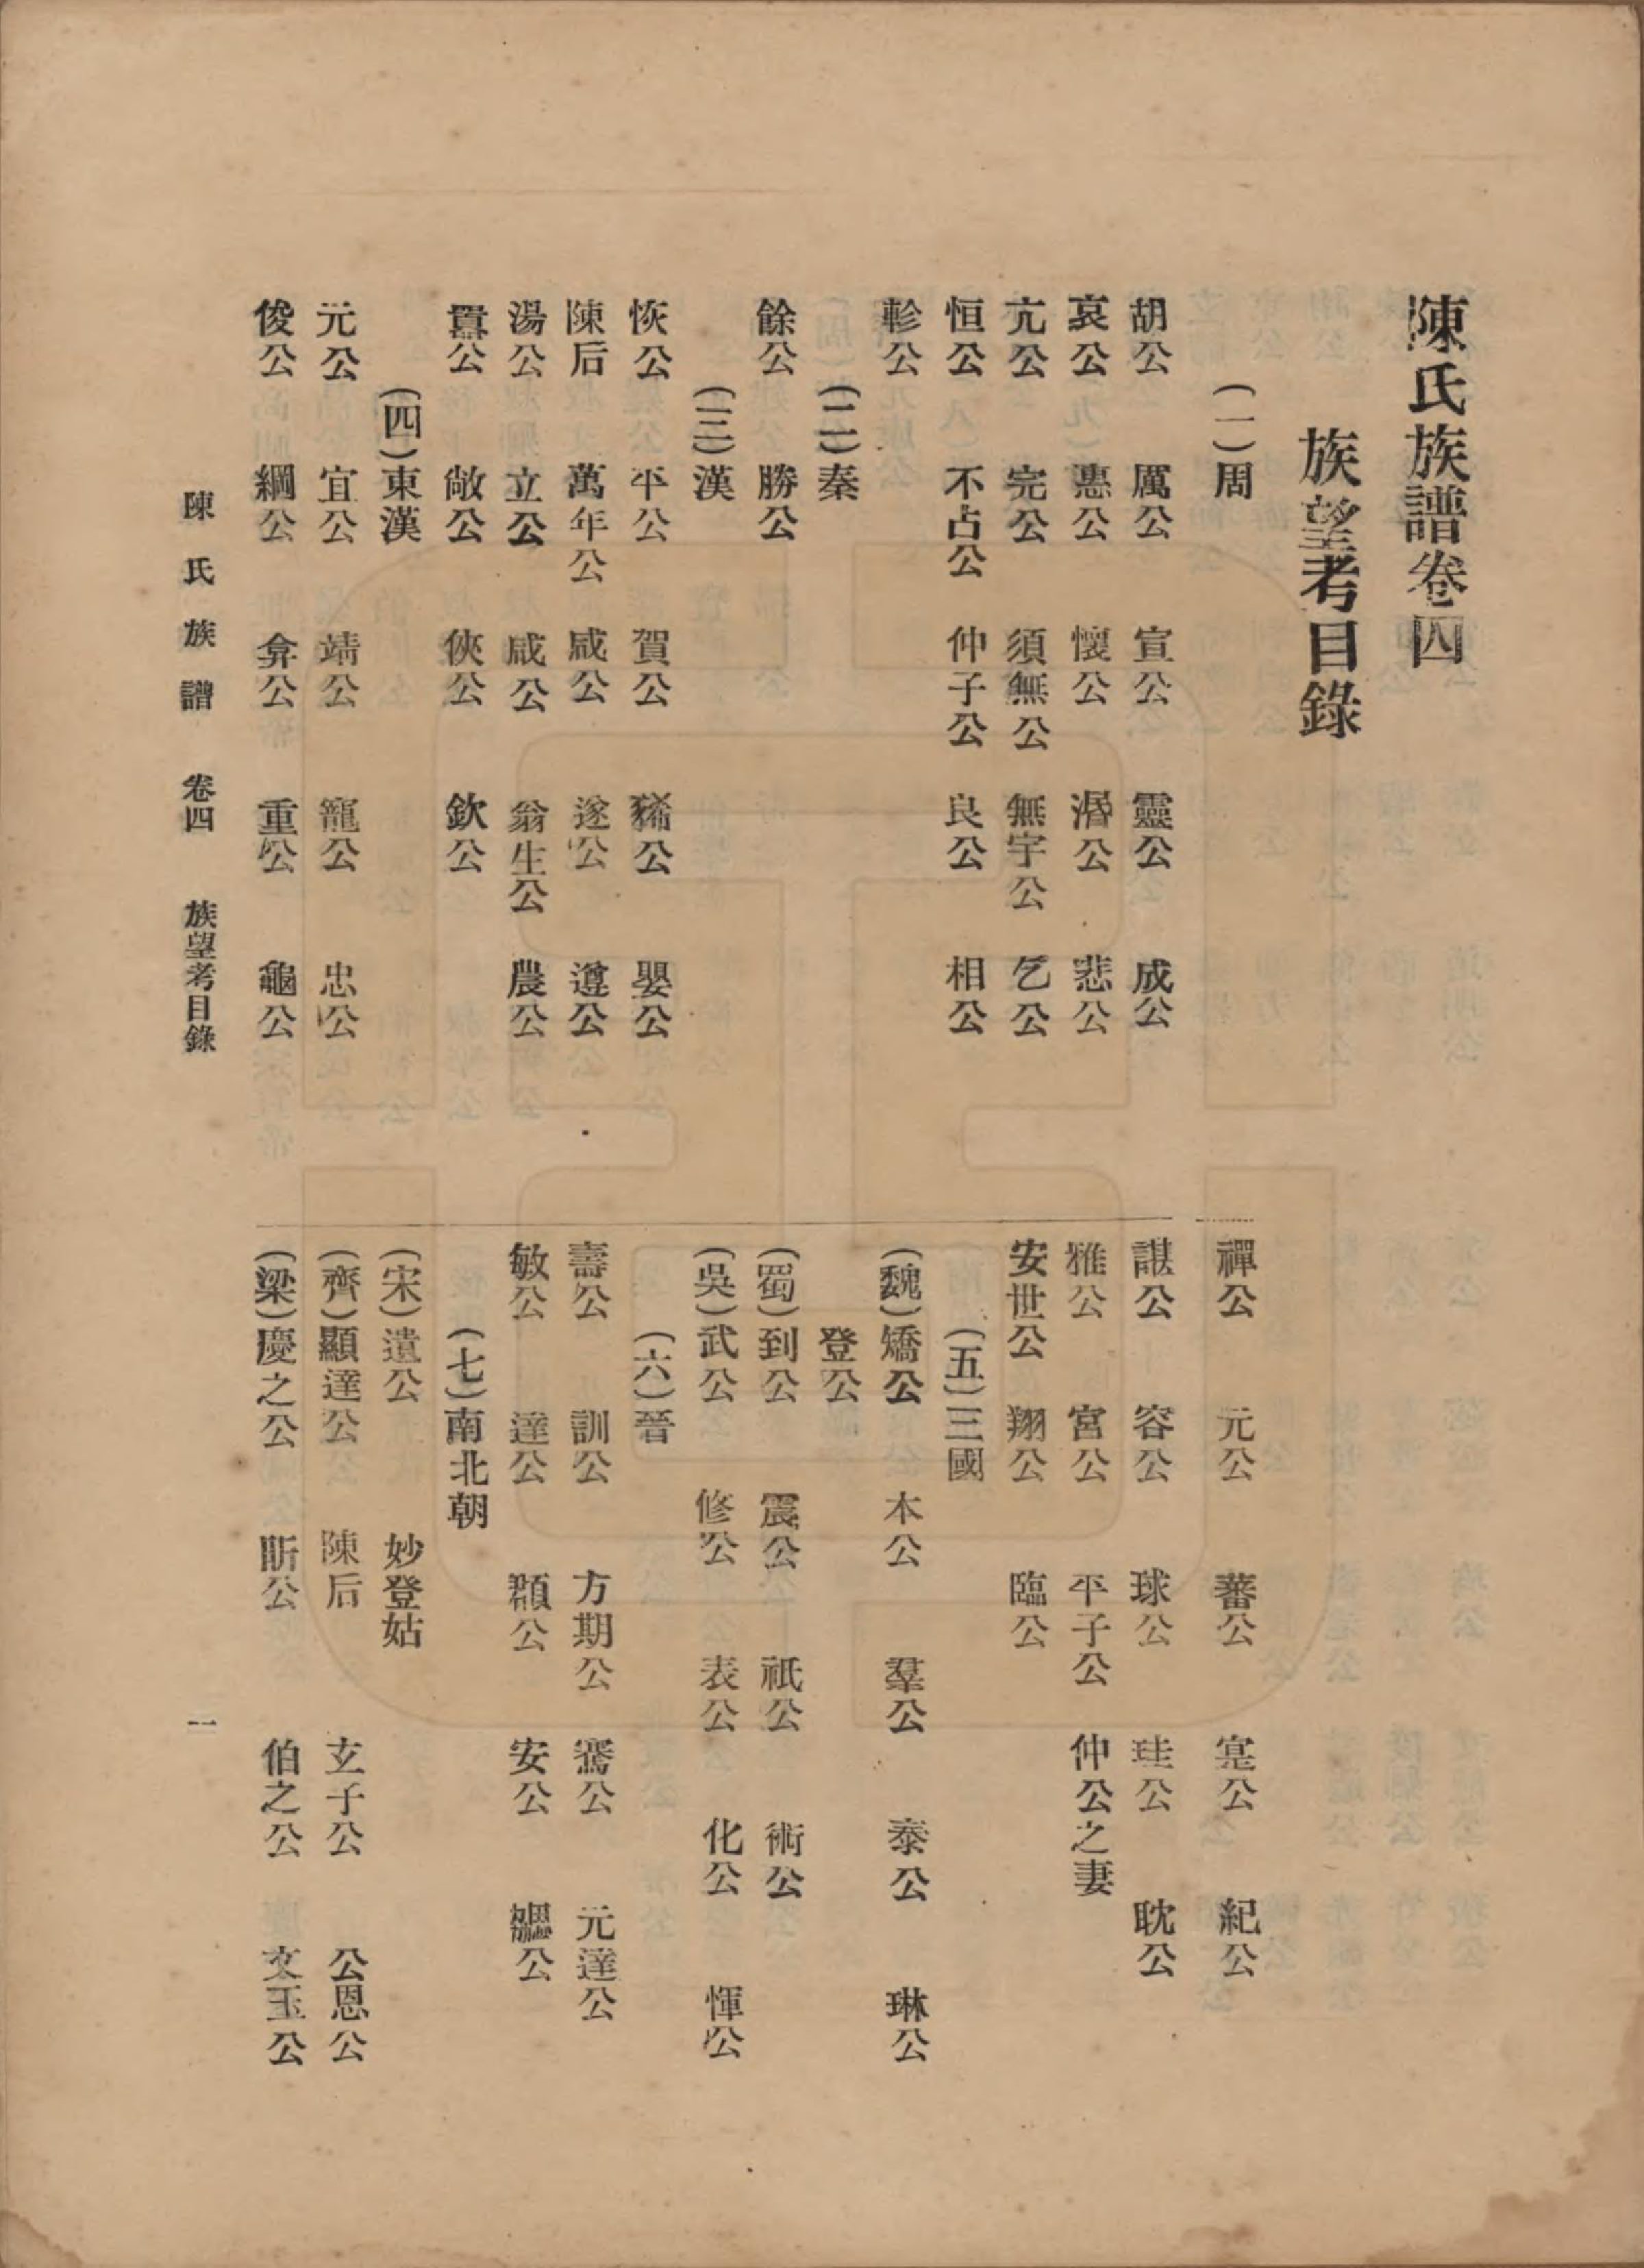 陳氏族譜卷四
族望考目錄
(一)周
胡公 厲公 宣公 靈公 成公
哀公 惠公 懷公 湣公 悲公
亢公 完公 須無公 無宇公 乞公
恒公 不占公 仲子公 良公 相公
軫公
(二)秦
餘公 勝公
(三)漢
恢公 平公 賀公 豨公 嬰公
陳后 萬年公 咸公 遂公 遵公
湯公 立公 咸公 翁生公 農公
囂公 敞公 俠公 欽公
(四)東漢
元公 宜公 靖公 寵公 忠公
俊公 綱公 弇公 重公 龜公
禪公 元公 蕃公 寔公 紀公
諶公 容公 球公 珪公 耽公
雅公 宮公 平子公 仲公之妻
安世公 翔公 臨公
(五)三國
(魏)矯公 本公 羣公 泰公 琳公
登公
(蜀)到公 震公 祇公 術公
(吳)武公 修公 表公 化公 惲公
(六)晉
壽公 訓公 方期公 騫公 元達公
敏公 達公 頵公 安公 勰公
(七)南北朝
(宋)遺公 妙登姑
(齊)顯達公 陳后 玄子公 公恩公
(梁)慶之公 昕公 伯之公 文玉公
陳氏族譜 卷四 族望考目錄 一